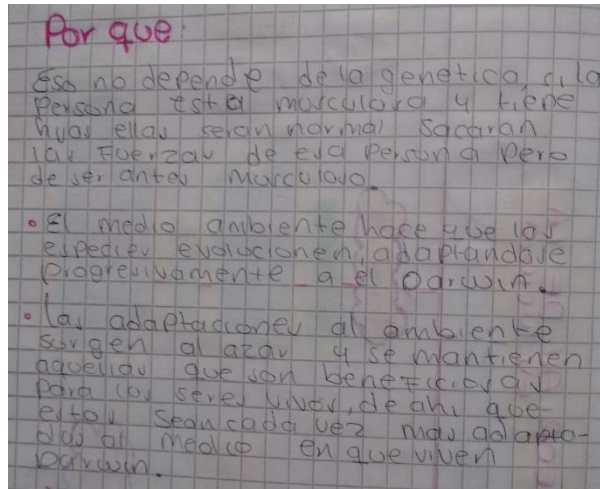 Por que:
Eso no depende de la genetica, si la
persona esta musculosa y tiene
hijas ellas seran normal sacaran
las Fuerzas de esa persona pero
de ser antes musculoso.
• El medio ambiente hace que las
especies evolucionen, adaptandose
progresivamente a el Darwin.
• las adaptaciones al ambiente
surgen al azar y se mantienen
aquellas que son beneficiosas
para los seres vivos, de ahi que
estos sean cada vez mas adapta-
dos al medio en que viven
Darwin.